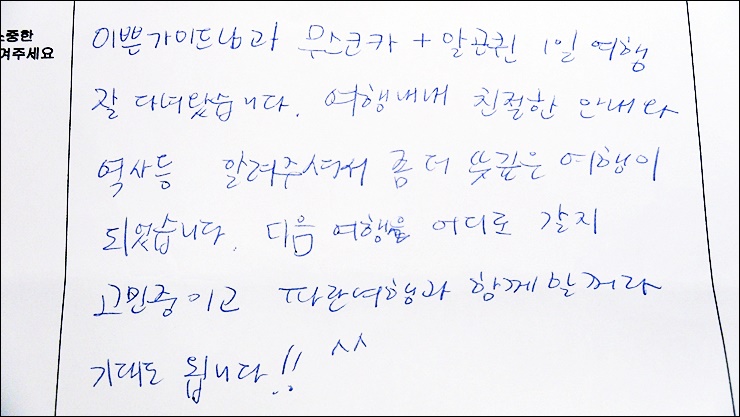 소중한
겨주세요
이쁜가이드님과 무스코카 + 알곤퀸 1일 여행
잘 다녀왔습니다. 여행내내 친절한 안내와
역사등 알려주셔서 좀 더 뜻깊은 여행이
되었습니다. 다음 여행을 어디로 갈지
고민중이고 파란여행과 함께 할꺼라
기대도 됩니다!! ^^